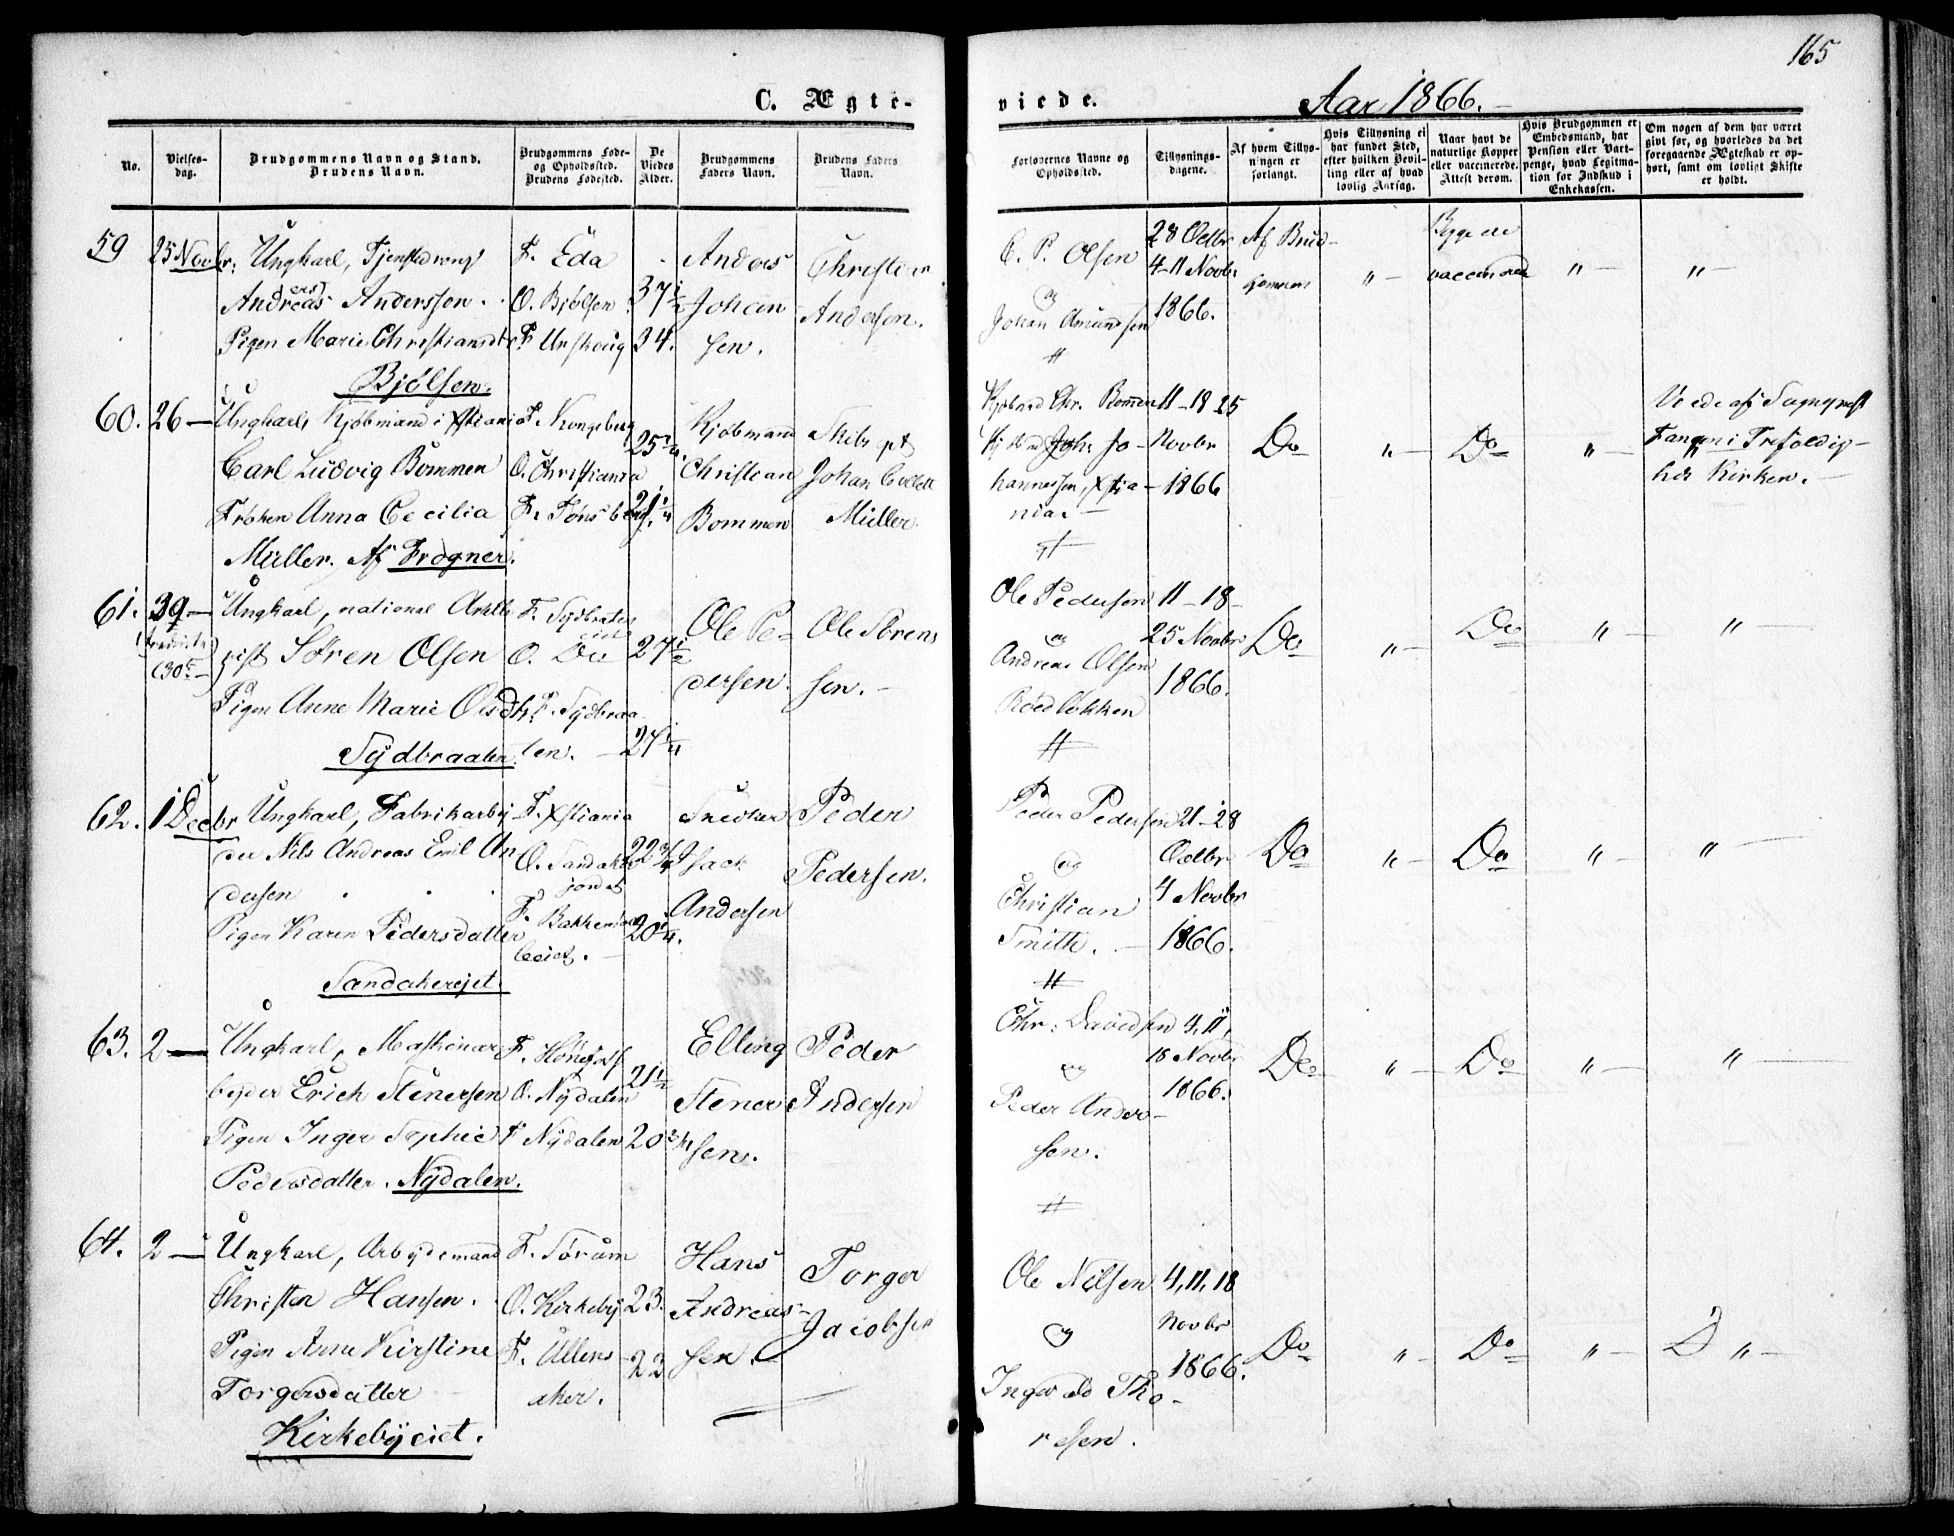 165
C. Ægte-
viede.
Aar 1866.
No.
Vielses-
dag.
Brudgommens Navn og Stand.
Brudens Navn.
Brudgommens Føde-
og Opholdssted.
Brudens Fødested.
De
Viedes
Alder.
Brudgommens
Faders Navn.
Brudens Faders
Navn.
Forlovernes Navne og
Opholdssted.
Tillysnings-
dagene.
Af hvem Tillys-
ningen er
forlangt.
Hvis Tillysning ei
har fundet Sted,
efter hvilken Bevil-
ling eller af hvad
lovlig Aarsag.
Naar havt de
naturlige Kopper
eller vaccinerede.
Attest derom.
Hvis Brudgommen er
Embedsmand, har
Pension eller Vart-
penge, hvad Legitima-
tion for Indskud i
Enkekassen.
Om nogen af dem har været
givt før, og hvorledes da det
foregaaende Ægteskab er op-
hørt, samt om lovligt Skifte
er holdt.
59 25 Novbr. Ungkarl, Tjenestedreng
Andreas Anderssen.
Pigen Marie Christiansdtr
Bjølsen.
F. Eda
O. Bjølsen
F. Urskoug
37 1/2
34.
Anders
Johan
sen.
Christian
Andersen.
C. P. Olsen
og
Johan Amundsen
28 Octbr
4-11 Novbr
1866.
Af Brud-
gommen
" -
Begge ere
vaccinered
" -
" -
60. 26 - Ungkarl, Kjøbmand i Xstiania
Carl Ludvig Bommen
Frøken Anna Cecilia
Müller. Af Frogner.
F. Kongsberg
O. Christiania
F. Tønsberg
25 1/4.
21 1/4
Kjøbmand
Christian
Bommen
Skibscpt
Johan Collett
Müller
Kjøbmd Chr. Bommen
Kjøbmd Joh. Jo-
hannessen, Xstia-
nia.
11-18 25
Novbr
1866
Do
" -
Do
" -
Viede af Sogneprest
Fangen i Trefoldig-
heds Kirken.
61. 39 - Ungkarl, national Artille
(30te -)
rist Søren Olsen
Pigen Anne Marie Olsdtr.
Sydbraaten
F. Sydbraten
eiet
O. Do
F. Sydbraa
ten. -
27 1/2
27 1/4
Ole Pe-
dersen.
Ole Sørens
sen. -
Ole Pedersen
og
Andreas Olsen
Rødløkken
11-18-
25 Novbr
1866.
Do
" -
Do
" -
" -
62. 1 Decbr Ungkarl, Fabrikarbej
der Nils Andreas Emil An
dersen
Pigen Karen Pedersdatter
Sandakerejet.
F. Xstiania
O. Sandaker
jordet
F. Bakkehaug
eiet. -
22 3/4
20 1/4.
Snedker
Isack
Andersen
Peder
Pedersen.
Peder Pedersen
og
Christian
Smith. -
21-28
Octbr
4 Novbr
1866.
Do
" -
Do
" -
" -
63. 2 - Ungkarl, Maskinar
bejder Erich Stenersen
Pigen Inger Sophie
Pedersdatter. Nydalen.
F. Hønefoss
O. Nydalen
F Nydalen
21 1/2
20 3/4
Elling
Stener
sen.
Peder
Andersen
Chr. Davidsen
og
Peder Ander-
sen.
4, 11,
18 Novbr
1866.
Do
" -
Do
" -
" -
64. 2 - Ungkarl, Arbejdsmand
Christen Hansen.
Pigen Anne Kirstine
Torgersdatter
Kirkebyeiet.
F. Sørum
O. Kirkeby
F. Ullens
aker.
23.
23
Hans
Andreas-
sen.
Torger
Jacobsen
Ole Nilsen
og
Ingvald Tho-
resen.
4, 11, 18
Novbr
1866.
Do
" -
Do
" -
" -